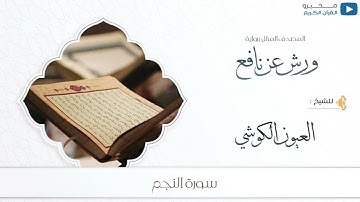 محبرو
القرآن الكريم
المصحف المرتل برواية
ورش عن نافع
للشيخ :
العيون الكوشي
سورة النجم